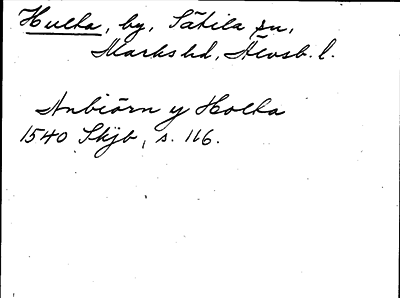 Hulta, by, Sätila sn,
Marks hd, Älvsb. l.
Anbiörn y Holta
1540 Skjb, s. 116.